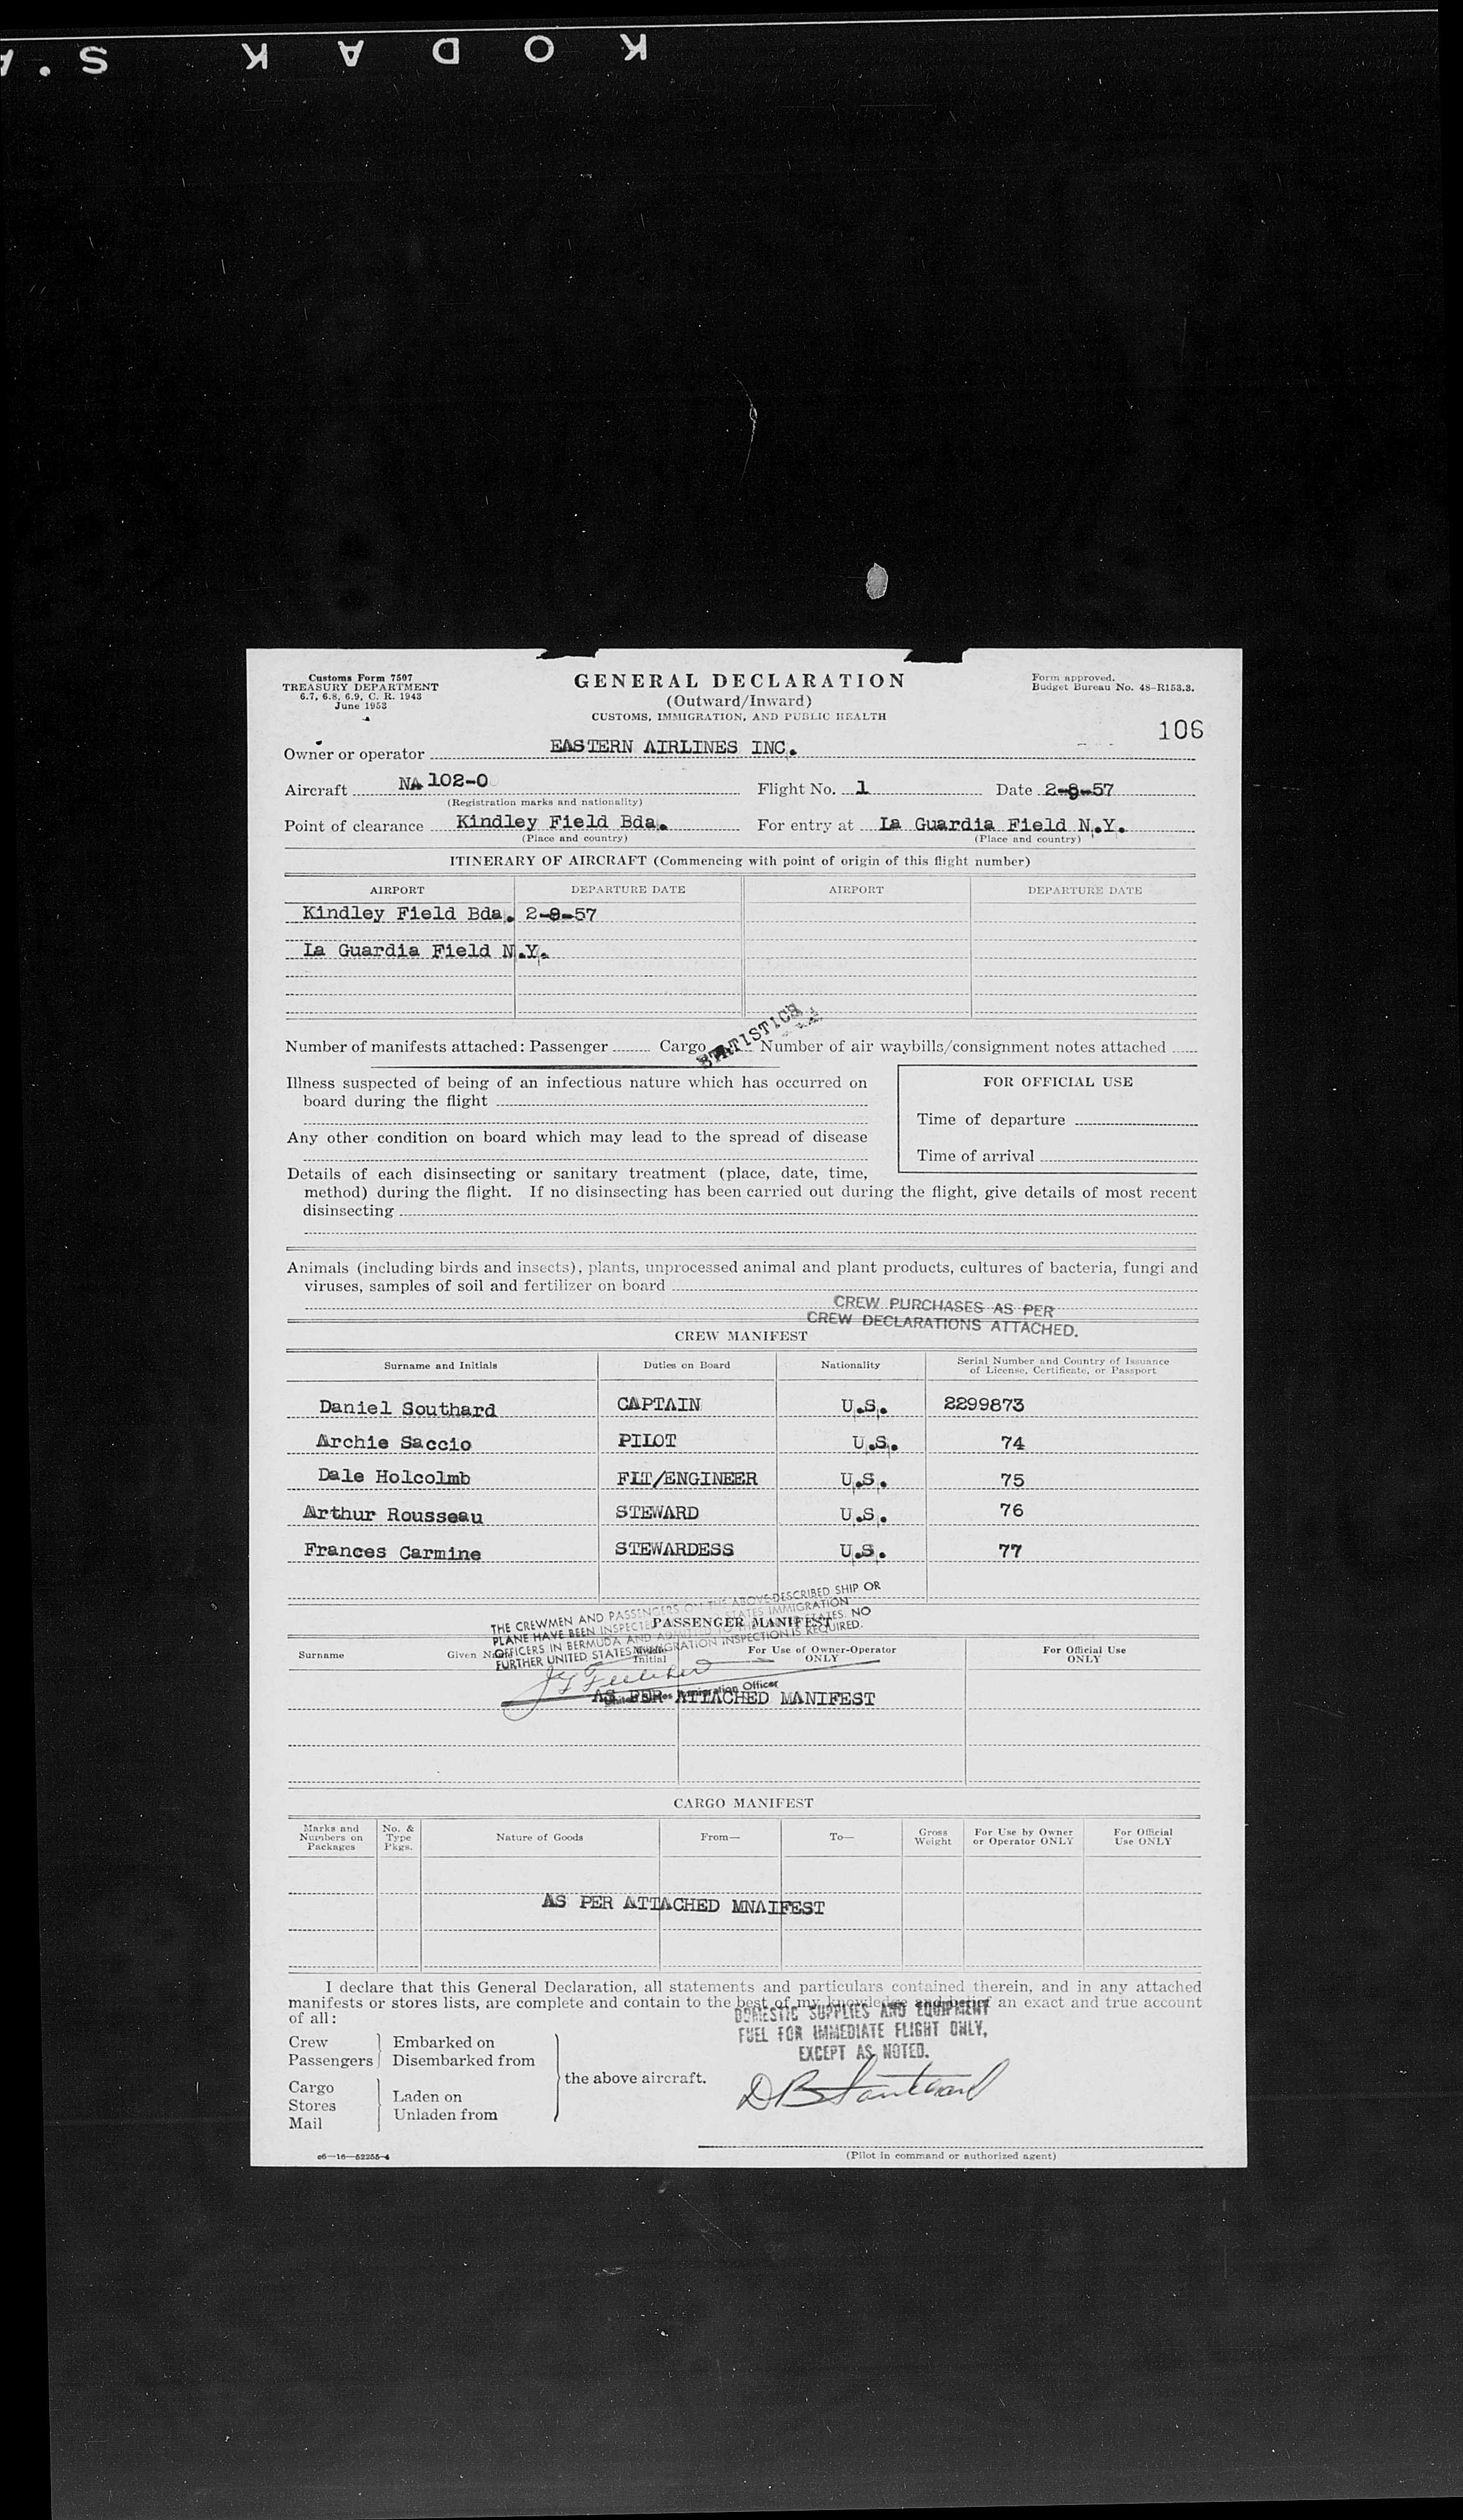 KODAK S.A
Customs Form 7507
TREASURY DEPARTMENT
6.7, 6.8, 6.9, C. R. 1943
June 1953
GENERAL DECLARATION
(Outward/Inward)
CUSTOMS, IMMIGRATION, AND PUBLIC HEALTH
Form approved.
Budget Bureau No. 48-R153.3.
106
Owner or operator EASTERN AIRLINES INC.
Aircraft NA 102-0 Flight No. 1 Date 2-9-57
(Registration marks and nationality)
Point of clearance Kindley Field Bda. For entry at La Guardia Field N.Y.
(Place and country) (Place and country)
ITINERARY OF AIRCRAFT (Commencing with point of origin of this flight number)
AIRPORT DEPARTURE DATE AIRPORT DEPARTURE DATE
Kindley Field Bda. 2-9-57
La Guardia Field N.Y.
STATISTICS
Number of manifests attached: Passenger Cargo Number of air waybills/consignment notes attached
Illness suspected of being of an infectious nature which has occurred on
board during the flight
Any other condition on board which may lead to the spread of disease
FOR OFFICIAL USE
Time of departure
Time of arrival
Details of each disinsecting or sanitary treatment (place, date, time,
method) during the flight. If no disinsecting has been carried out during the flight, give details of most recent
disinsecting
Animals (including birds and insects), plants, unprocessed animal and plant products, cultures of bacteria, fungi and
viruses, samples of soil and fertilizer on board
CREW PURCHASES AS PER
CREW DECLARATIONS ATTACHED.
CREW MANIFEST
Surname and Initials Duties on Board Nationality Serial Number and Country of Issuance
of License, Certificate, or Passport
Daniel Southard CAPTAIN U.S. 2299873
Archie Saccio PILOT U.S. 74
Dale Holcolmb FLT/ENGINEER U.S. 75
Arthur Rousseau STEWARD U.S. 76
Frances Carmine STEWARDESS U.S. 77
THE CREWMEN AND PASSENGERS ON THE ABOVE-DESCRIBED SHIP OR
PLANE HAVE BEEN INSPECTED STATES IMMIGRATION
OFFICERS IN BERMUDA AND ADMITTED TO THE STATES. NO
FURTHER UNITED STATES IMMIGRATION INSPECTION IS REQUIRED.
PASSENGER MANIFEST
Surname Given Name Middle Initial For Use of Owner-Operator ONLY For Official Use ONLY
United States Immigration Officer
AS PER ATTACHED MANIFEST
CARGO MANIFEST
Marks and Numbers on Packages No. & Type Pkgs. Nature of Goods From— To— Gross Weight For Use by Owner or Operator ONLY For Official Use ONLY
AS PER ATTACHED MNAIFEST
I declare that this General Declaration, all statements and particulars contained therein, and in any attached
manifests or stores lists, are complete and contain to the best of my knowledge and belief an exact and true account
of all:
DOMESTIC SUPPLIES AND EQUIPMENT
FUEL FOR IMMEDIATE FLIGHT ONLY,
EXCEPT AS NOTED.
Crew Embarked on
Passengers Disembarked from
the above aircraft.
Cargo
Stores Laden on
Mail Unladen from
D B Southard
(Pilot in command or authorized agent)
c6—16—52255-4